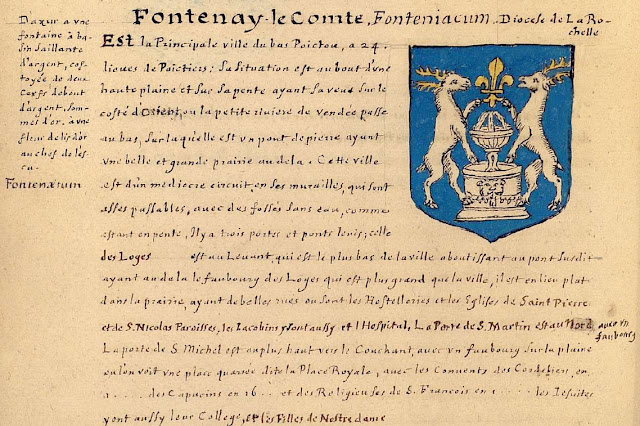 Fontenay-le Comte, Fonteniacum. Diocese de La Ro-
chelle
D'azur a une
fontaine à ba-
sin saillante
d'argent, cos-
toyée de deux
Cerfs debout
d'argent, som-
més d'or. à une
fleur de lis d'or
au chef de l'es-
cu.
Fontenæum
Est la Principale ville du bas Poictou, a 24
lieues de Poictiers; Sa Situation est au bout d'une
haute plaine et sur sa pente ayant sa veüe sur le
costé d'Orient, ou la petite riviere de Vendée passe
au bas, sur laquelle est un pont de pierre ayant
une belle et grande prairie au dela. Cette ville
est d'un mediocre circuit, en ses murailles, qui sont
asses passables, avec des fossés sans eau, comme
estant en pente, Il y a trois portes et ponts levis; celle
des Loges est au Levant, qui est le plus bas de la ville aboutissant au pont susdit
ayant au dela le faubourg des Loges qui est plus grand que la ville, il est en lieu plat
dans la prairie, ayant de belles rues ou sont les Hostelleries et les Eglises de Saint Pierre
et de S. Nicolas Paroisses, les Iacobins y sont aussy et l'Hospital, La Porte de S. Martin est au Nord
avec un
faubourg
La porte de S Michel est au plus haut vers le Couchant, avec un faubourg sur la plaine
ou l'on voit une place quarrée dite la Place Royale, avec les Convents des Cordeliers, en
1..... des Capucins en 16... et des Religieuses de S. Francois en 1..... les Iesuites
y ont aussy leur College, et les Filles de Nostre dame